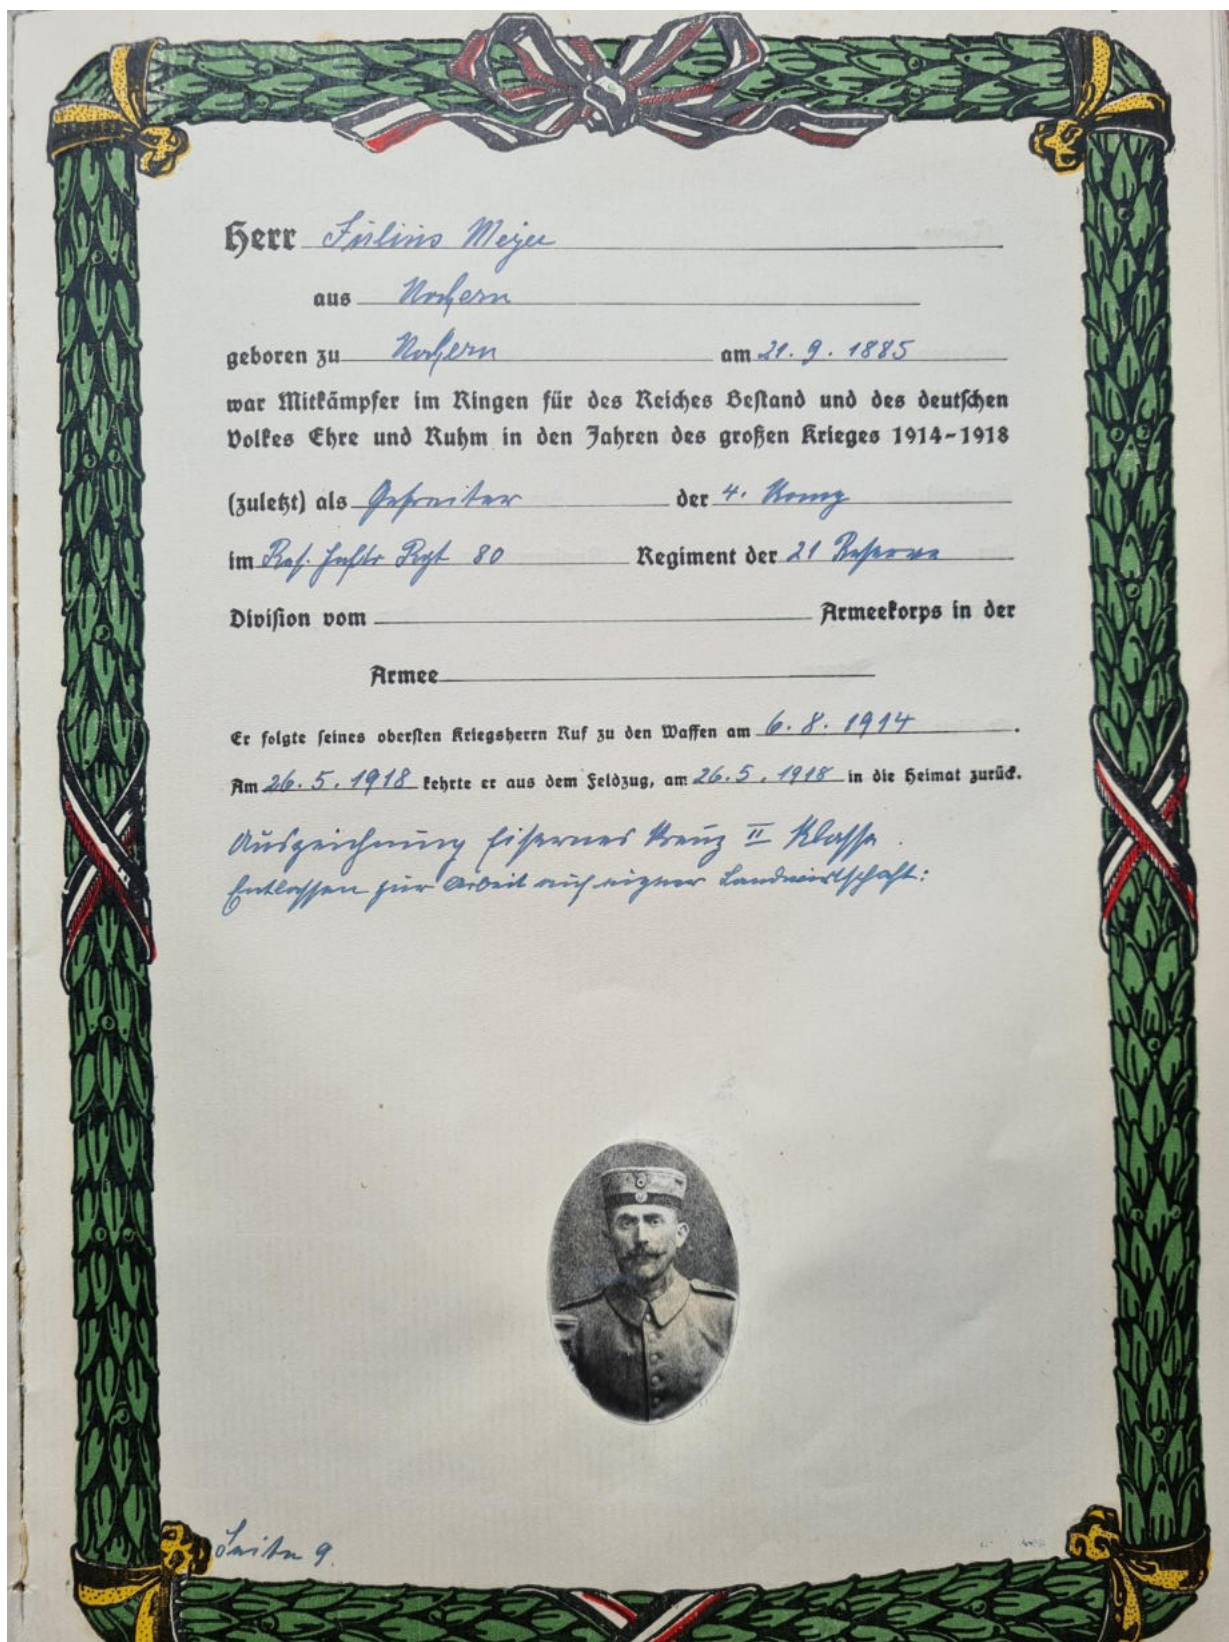 Herr Julius Meyer
aus Nochern
geboren zu Nochern am 21. 9. 1885
war Mitkämpfer im Ringen für des Reiches Bestand und des deutschen
Volkes Ehre und Ruhm in den Jahren des großen Krieges 1914-1918
(zuletzt) als Gefreiter der 4. Komp
im Res. Inftr Rgt 80 Regiment der 21 Reserve
Division vom Armeekorps in der
Armee
Er folgte seines obersten Kriegsherrn Ruf zu den Waffen am 6. 8. 1914.
Am 26. 5. 1918 kehrte er aus dem Feldzug, am 26. 5. 1918 in die Heimat zurück.
Auszeichnung Eisernes Kreuz II Klasse.
Entlassen zur Arbeit auf eigner Landwirtschaft:
Seite 9.